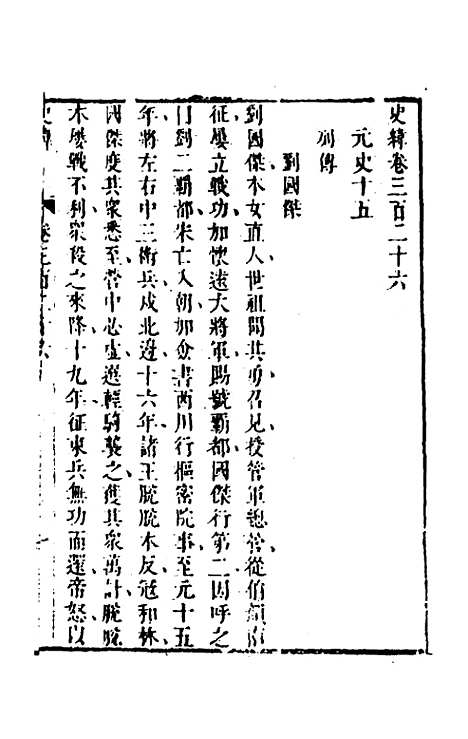 史緯卷三百二十六
元史十五
列傳
劉國傑
劉國傑本女直人世祖聞其勇召見授管軍總管從伯顏南
征屢立戰功加懷遠大將軍賜號霸都國傑行第二因呼之
曰劉二霸都宋亡入朝加僉書西川行樞密院事至元十五
年將左右中三衛兵戍北邊十六年諸王脫脫木反冦和林
國傑度其衆悉至營中必虛選輕騎襲之獲其衆萬計脫脫
木屢戰不利衆殺之來降十九年征東兵無功而還帝怒以
史緯